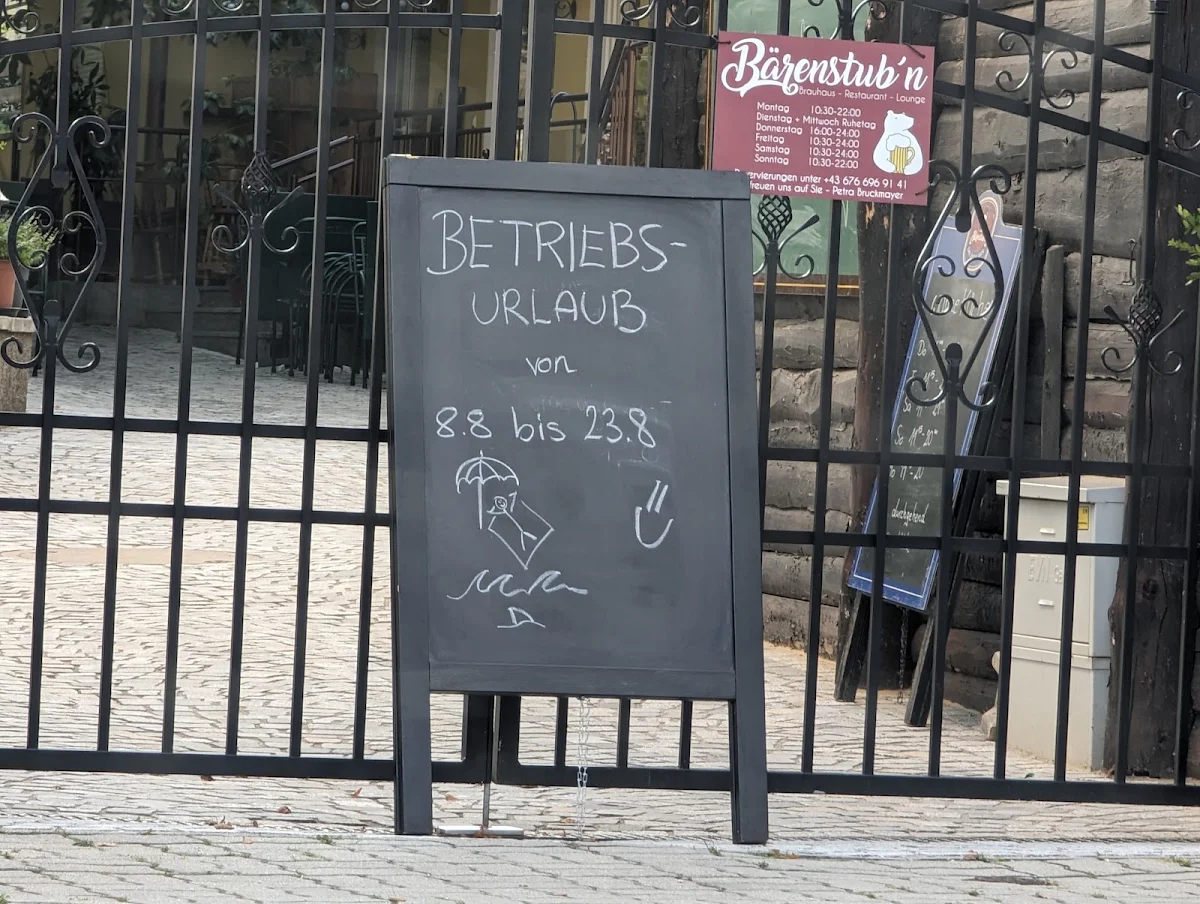 Bärenstub'n
Brauhaus - Restaurant - Lounge
Montag 10:30-22:00
Dienstag + Mittwoch Ruhetag
Donnerstag 16:00-24:00
Freitag 10:30-24:00
Samstag 10:30-24:00
Sonntag 10:30-22:00
unter +43 676 696 91 41
freuen uns auf Sie - Petra Bruckmayer
BETRIEBS-
URLAUB
von
8.8 bis 23.8
Do
Sa
So 11³⁰-20⁰⁰
durchgehend